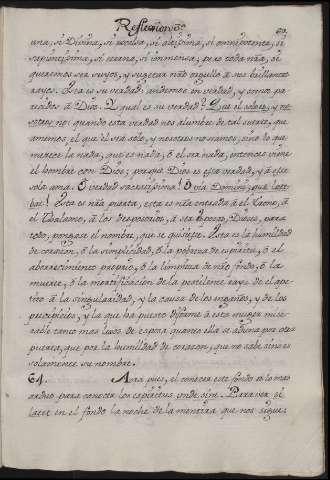 Reflexiones
una, si Divina, si excelsa, si altissima, si omnipotente, si
sapientissima, si eterna, si immensa, pero toda nãa, si
queremos ser suyos, y sugetar não orgullo â sus brillantes
rayos. Sea es su verdad: andemos en verdad, y como pa-
recidos â Dios. Y qual es su verdad? Que el solo es, y no-
sotros no: quando esta verdad nos alumbre de tal suerte, que
amemos, el que el sea solo, y nosotros no seamos, sino lo que
merece la nada, que es nada, ô el ser nada, entonces viene
el hombre con Dios; porque Dios es esta verdad, y â esta
sola ama. O verdad sacratissima! O via Domini, quæ
bat! Esta es nãa puerta, esta es nãa entrada â el
el Thalamo, â los desposorios, â ser Dioses, para
todo, pongase el nombre, que se quisiere. Esta es la humildad
de corazon, ô la simplicidad, ô la pobreza de espiritu, ô el
aborrecimiento proprio, ô la limpieza de não fondo, ô la
muerte, ô la mortificacion de la pestilente rayz de el ape-
tito â la singularidad, y la causa de los engaños, y de los
precipicios, y la que ha puesto
tanto mas lexos de esposa quanto ella se
puerta, que por la humildad de corazon, que no sabe sino es
solamente su nombre.
64. Aora pues, el conocer este fondo es lo mas
arduo para conocer los espiritus, unde sint. Para ver si
latet en el fondo la noche de la mentira que nos sigue,